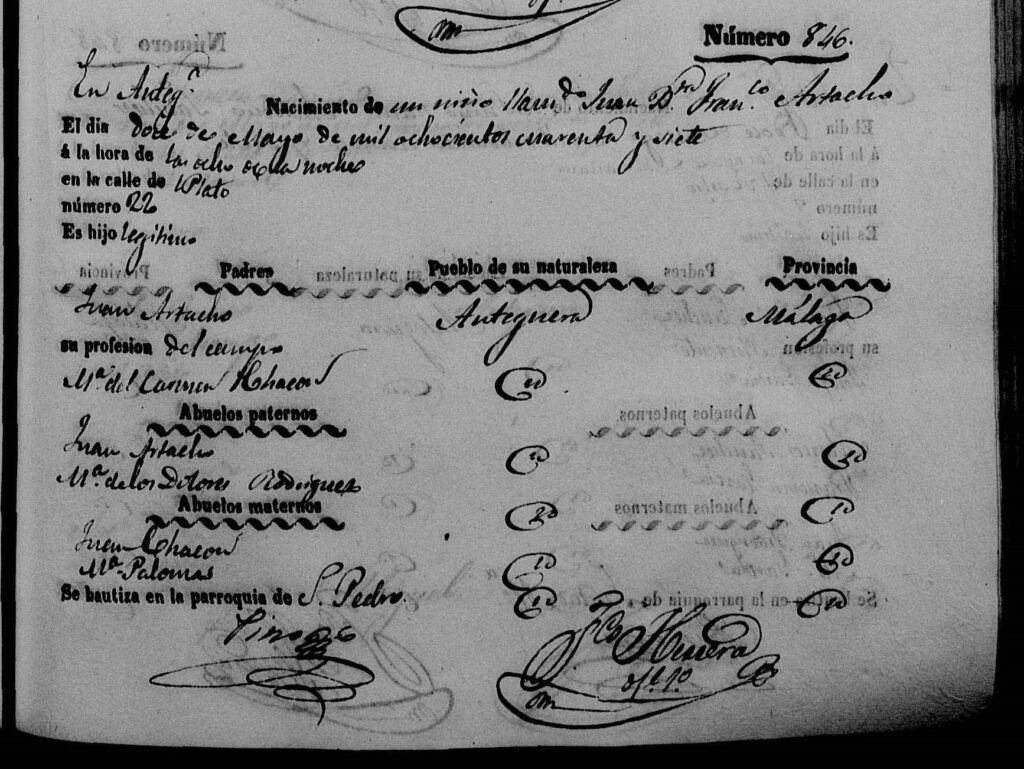 Número 846.
En Anteqª
Nacimiento de un niño llamdo Juan Dn Franco Artacho
El dia doce de Mayo de mil ochocientos cuarenta y siete
á la hora de las ocho de la noche
en la calle de Plato
número 22
Es hijo legitimo
Padres Pueblo de su naturaleza Provincia
Juan Artacho Antequera Málaga
su profesion del campo
Mª del Carmen Chacon Id Id
Abuelos paternos
Juan Artacho Id Id
Mª de los Dolores Rodriguez
Abuelos maternos Id Id
Juan Chacon
Mª Palomas Id Id
Se bautiza en la parroquia de S. Pedro. Id Id
Fco Herrera
ofl 1º